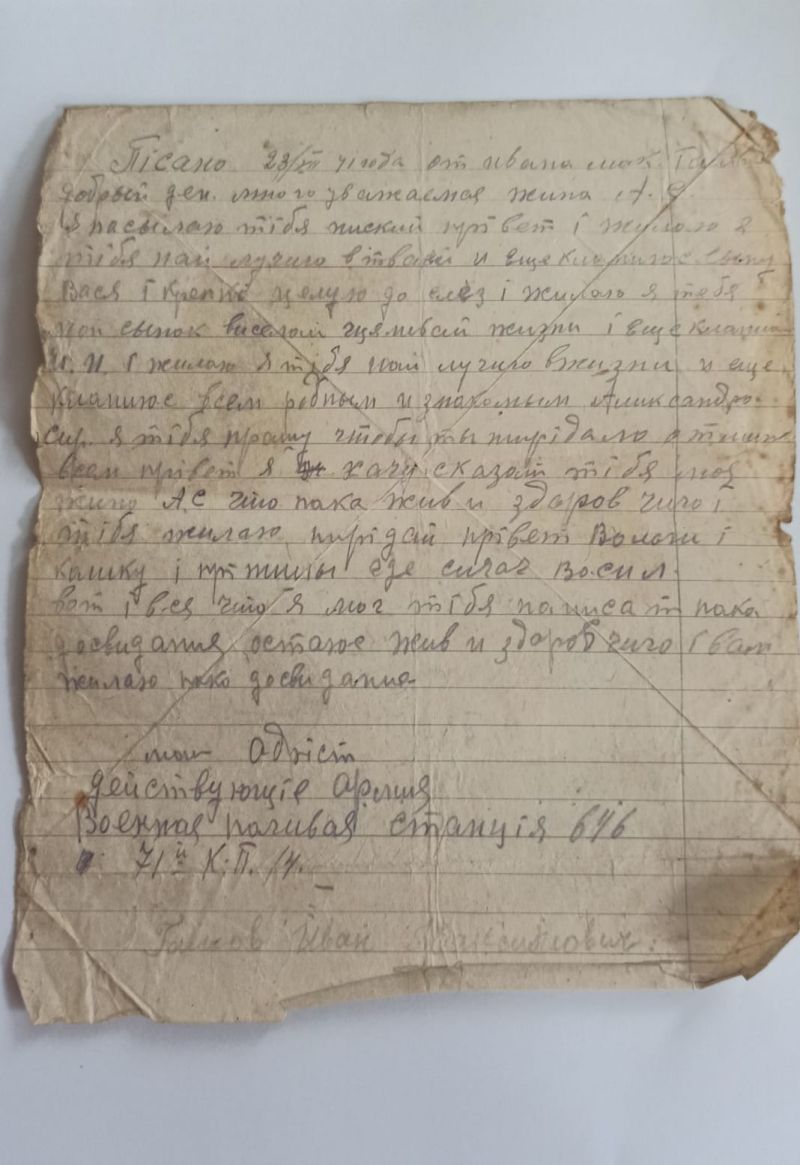 Пісано 23/XII 41 года от ивана мак.
добрый ден. много уважаемая жина А. С.
я пасылаю тібя ниский прівет і жилаю я
тібя най лучиго и еще кланиюс сыну
Вася і крепко целую до слёз і жилаю я тебя
мой сынок виселой жизни і еще
и. и. і жилаю я тібя най лучиго вжизни и еще
кланиюс всем родным и знакомым Аликсандро.
я тібя прашу чтобы ты пирідала
всем прівет я хачу сказат тібя моя
жина АС что пака жив и здаров чиго і
тібя жилаю пирідай прівет Волоки і
і где сичас Восил.
вот і вся что я мог тібя написат пака
досвидания остаюс жив и здаров чиго і вам
жилаю пако досвидание
мои Адріст
действующіе армия
Военная пачивая станція 646
71й К.П. 14.
Иван Максимович.